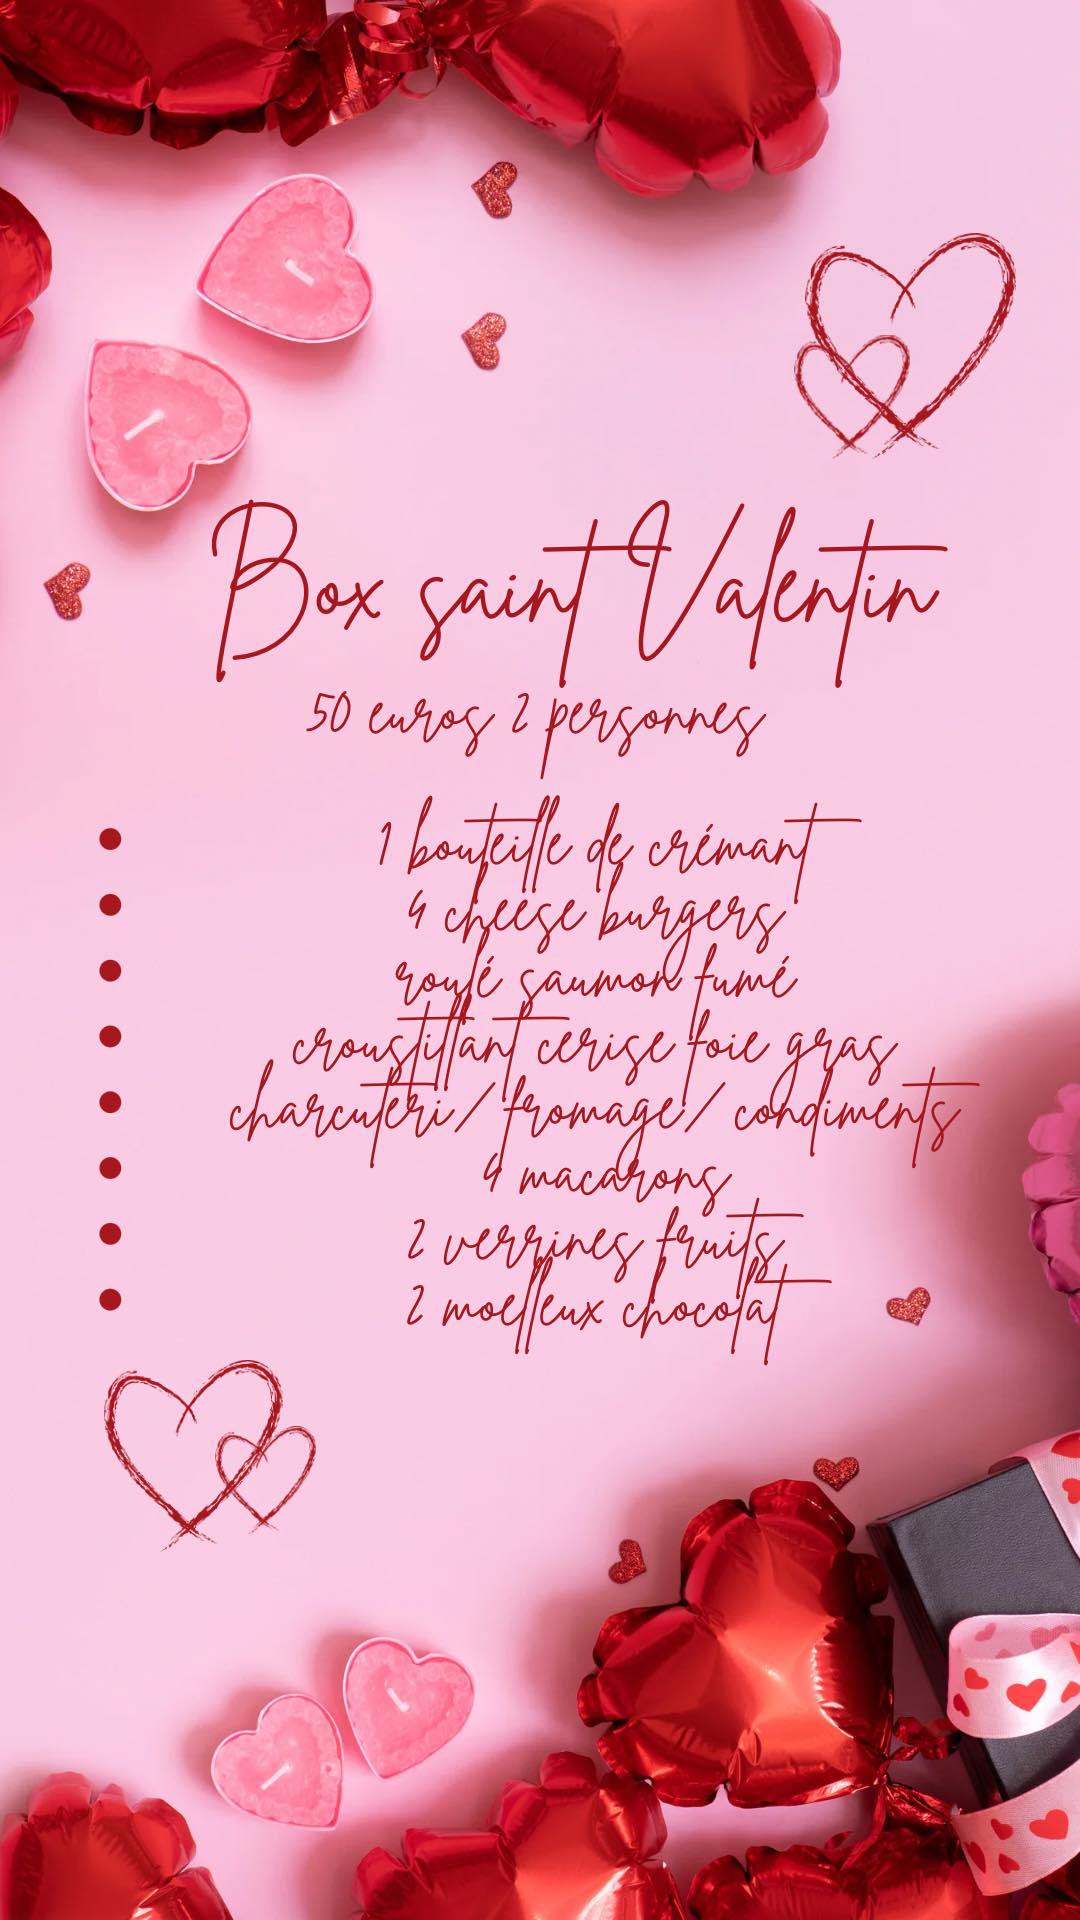 Box saint Valentin
50 euros 2 personnes
1 bouteille de crémant
4 cheese burgers
roulé saumon fumé
croustillant cerise foie gras
charcuteri/ fromage/ condiments
4 macarons
2 verrines fruits
2 moelleux chocolat